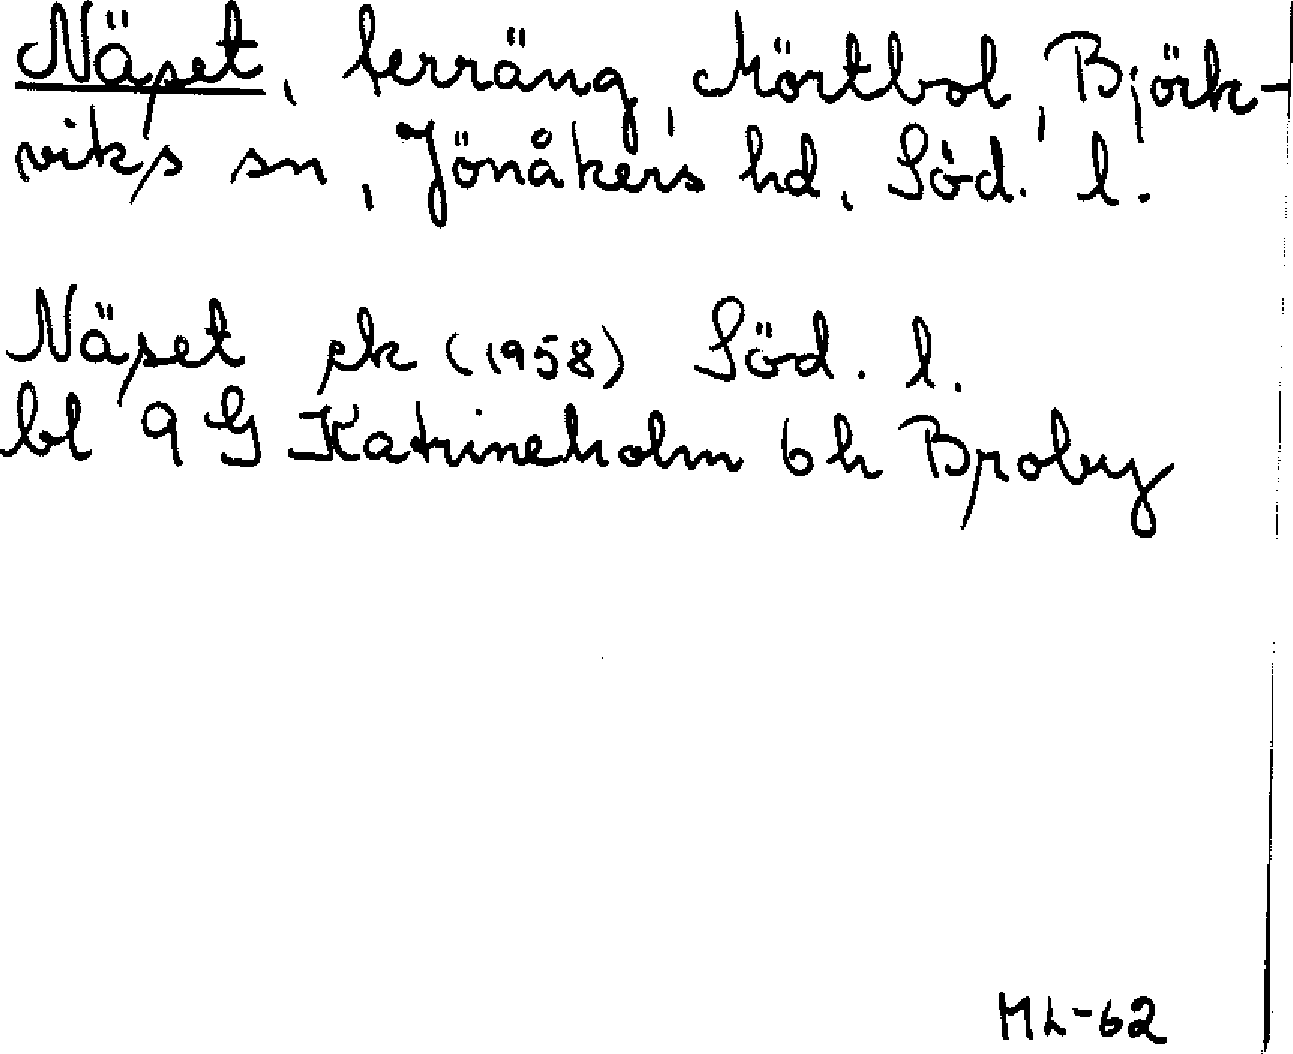 Näset, terräng, Mörtbol, Björk-
viks sn, Jönåkers hd, Söd. l.
Näset ek (1958) Söd. l.
bl 9 G Katrineholm 6h Broby
ML-62